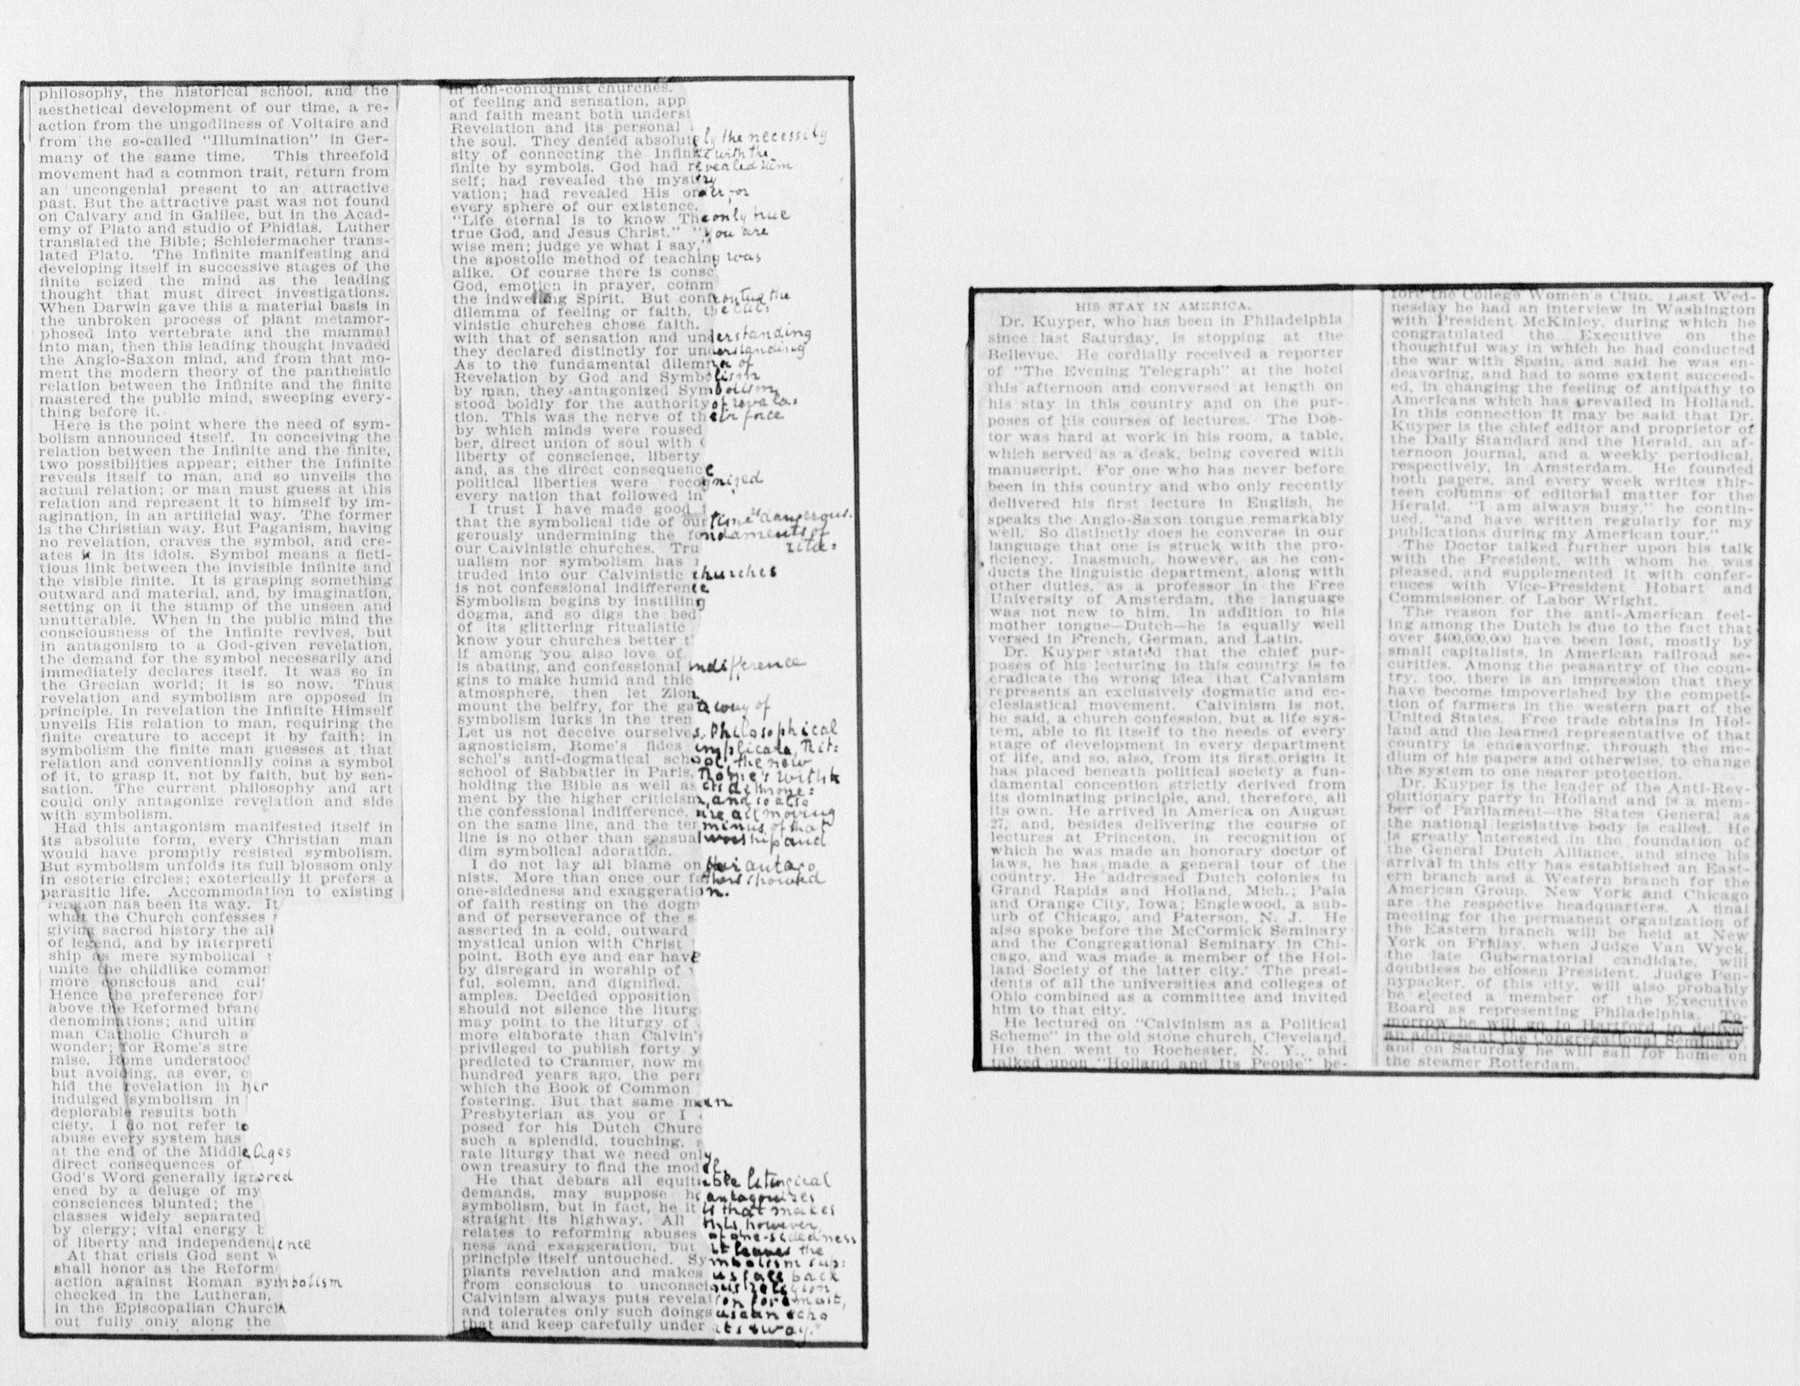 philosophy, the historical school, and the
aesthetical development of our time, a re-
action from the ungodliness of Voltaire and
from the so-called "Illumination" in Ger-
many of the same time. This threefold
movement had a common trait, return from
an uncongenial present to an attractive
past. But the attractive past was not found
on Calvary and in Galilee, but in the Acad-
emy of Plato and studio of Phidias. Luther
translated the Bible; Schleiermacher trans-
lated Plato. The Infinite manifesting and
developing itself in successive stages of the
finite seized the mind as the leading
thought that must direct investigations.
When Darwin gave this a material basis in
the unbroken process of plant metamor-
phosed into vertebrate and the mammal
into man, then this leading thought invaded
the Anglo-Saxon mind, and from that mo-
ment the modern theory of the pantheistic
relation between the Infinite and the finite
mastered the public mind, sweeping every-
thing before it.
Here is the point where the need of sym-
bolism announced itself. In conceiving the
relation between the Infinite and the finite,
two possibilities appear; either the Infinite
reveals itself to man, and so unveils the
actual relation; or man must guess at this
relation and represent it to himself by im-
agination, in an artificial way. The former
is the Christian way. But Paganism, having
no revelation, craves the symbol, and cre-
ates it in its idols. Symbol means a ficti-
tious link between the invisible infinite and
the visible finite. It is grasping something
outward and material, and, by imagination,
setting on it the stamp of the unseen and
unutterable. When in the public mind the
consciousness of the Infinite revives, but
in antagonism to a God-given revelation,
the demand for the symbol necessarily and
immediately declares itself. It was so in
the Grecian world; it is so now. Thus
revelation and symbolism are opposed in
principle. In revelation the Infinite Himself
unveils His relation to man, requiring the
finite creature to accept it by faith; in
symbolism the finite man guesses at that
relation and conventionally coins a symbol
of it, to grasp it, not by faith, but by sen-
sation. The current philosophy and art
could only antagonize revelation and side
with symbolism.
Had this antagonism manifested itself in
its absolute form, every Christian man
would have promptly resisted symbolism.
But symbolism unfolds its full blossom only
in esoteric circles; exoterically it prefers a
parasitic life. Accommodation to existing
religion has been its way. It
what the Church confesses
giving sacred history the all
of legend, and by interpreti
ship as mere symbolical
unite the childlike common
more conscious and cul
Hence the preference for
above the Reformed branc
denominations; and ultim
man Catholic Church a
wonder; for Rome's stre
mise. Rome understood
but avoiding, as ever, c
hid the revelation in her
indulged symbolism in
deplorable results both
ciety. I do not refer to
abuse every system has
at the end of the Middle Ages
direct consequences of
God's Word generally ignored
ened by a deluge of my
consciences blunted; the
classes widely separated
by clergy; vital energy
of liberty and independence
At that crisis God sent
shall honor as the Reform
action against Roman symbolism
checked in the Lutheran,
in the Episcopalian Church
out fully only along the
in non-conformist churches.
of feeling and sensation, app
and faith meant both underst
Revelation and its personal
the soul. They denied absolutely the necessity
sity of connecting the Infinite with the
finite by symbols. God had revealed Him
self; had revealed the mystery
vation; had revealed His order, for
every sphere of our existence.
"Life eternal is to know The only true
true God, and Jesus Christ." "You are
wise men; judge ye what I say,"
the apostolic method of teaching was
alike. Of course there is consc
God, emotion in prayer, comm
the indwelling Spirit. But confronting the
dilemma of feeling or faith, the Cal:
vinistic churches chose faith.
with that of sensation and understanding
they declared distinctly for understanding
As to the fundamental dilemma of
Revelation by God and Symbolism
by man, they antagonized Symbolism
stood boldly for the authority of revela=
tion. This was the nerve of their force
by which minds were roused
ber, direct union of soul with
liberty of conscience, liberty
and, as the direct consequence
political liberties were recognized
every nation that followed in
I trust I have made good
that the symbolical tide of our time is dangerous.
gerously undermining the fondaments of
our Calvinistic churches. Tru ritu=
ualism nor symbolism has
truded into our Calvinistic churches
is not confessional indifference
Symbolism begins by instilling
dogma, and so digs the bed
of its glittering ritualistic
know your churches better t
if among you also love of
is abating, and confessional indifference
gins to make humid and thic
atmosphere, then let Zion
mount the belfry, for the gate way of
symbolism lurks in the tren
Let us not deceive ourselves. Philosophical
agnosticism, Rome's fides implicata, Rit:
schel's anti-dogmatical school, the new
school of Sabbatier in Paris, Rome's with:
holding the Bible as well as its dethrone:
ment by the higher criticism, and so also
the confessional indifference, are all moving
on the same line, and the terminus of that
line is no other than sensual worship and
dim symbolical adoration.
I do not lay all blame on our antago
nists. More than once our fathers showed
one-sidedness and exaggeration.
of faith resting on the dogm
and of perseverance of the s
asserted in a cold, outward
mystical union with Christ
point. Both eye and ear have
by disregard in worship of
ful, solemn, and dignified.
amples. Decided opposition
should not silence the liturg
may point to the liturgy of
more elaborate than Calvin's
privileged to publish forty y
predicted to Cranmer, now mo
hundred years ago, the perr
which the Book of Common
fostering. But that same man
Presbyterian as you or I
posed for his Dutch Churc
such a splendid, touching,
rate liturgy that we need only
own treasury to find the model.
He that debars all equitable liturgical
demands, may suppose he antagonizes
symbolism, but in fact, he it is that makes
straight its highway. All this however,
relates to reforming abuses of one-sidedness
ness and exaggeration, but it leaves the
principle itself untouched. Symbolism sup:
plants revelation and makes us fall back
from conscious to unconscious religion.
Calvinism always puts revelation foremost,
and tolerates only such doings as can echo
that and keep carefully under its sway."
HIS STAY IN AMERICA.
Dr. Kuyper, who has been in Philadelphia
since last Saturday, is stopping at the
Bellevue. He cordially received a reporter
of "The Evening Telegraph" at the hotel
this afternoon and conversed at length on
his stay in this country and on the pur-
poses of his courses of lectures. The Doc-
tor was hard at work in his room, a table,
which served as a desk, being covered with
manuscript. For one who has never before
been in this country and who only recently
delivered his first lecture in English, he
speaks the Anglo-Saxon tongue remarkably
well. So distinctly does he converse in our
language that one is struck with the pro-
ficiency. Inasmuch, however, as he con-
ducts the linguistic department, along with
other duties, as a professor in the Free
University of Amsterdam, the language
was not new to him. In addition to his
mother tongue—Dutch—he is equally well
versed in French, German, and Latin.
Dr. Kuyper stated that the chief pur-
poses of his lecturing in this country is to
eradicate the wrong idea that Calvanism
represents an exclusively dogmatic and ec-
clesiastical movement. Calvinism is not,
he said, a church confession, but a life sys-
tem, able to fit itself to the needs of every
stage of development in every department
of life, and so, also, from its first origin it
has placed beneath political society a fun-
damental conception strictly derived from
its dominating principle, and, therefore, all
its own. He arrived in America on August
27, and, besides delivering the course of
lectures at Princeton, in recognition of
which he was made an honorary doctor of
laws, he has made a general tour of the
country. He addressed Dutch colonies in
Grand Rapids and Holland, Mich.; Pala
and Orange City, Iowa; Englewood, a sub-
urb of Chicago, and Paterson, N. J. He
also spoke before the McCormick Seminary
and the Congregational Seminary in Chi-
cago, and was made a member of the Hol-
land Society of the latter city. The presi-
dents of all the universities and colleges of
Ohio combined as a committee and invited
him to that city.
He lectured on "Calvinism as a Political
Scheme" in the old stone church, Cleveland.
He then went to Rochester, N. Y., and
talked upon "Holland and Its People" be-
fore the College Women's Club. Last Wed-
nesday he had an interview in Washington
with President McKinley, during which he
congratulated the Executive on the
thoughtful way in which he had conducted
the war with Spain, and said he was en-
deavoring, and had to some extent succeed-
ed, in changing the feeling of antipathy to
Americans which has prevailed in Holland.
In this connection it may be said that Dr.
Kuyper is the chief editor and proprietor of
the Daily Standard and the Herald, an af-
ternoon journal, and a weekly periodical,
respectively, in Amsterdam. He founded
both papers, and every week writes thir-
teen columns of editorial matter for the
Herald. "I am always busy," he contin-
ued, "and have written regularly for my
publications during my American tour."
The Doctor talked further upon his talk
with the President, with whom he was
pleased, and supplemented it with confer-
ences with Vice-President Hobart and
Commissioner of Labor Wright.
The reason for the anti-American feel-
ing among the Dutch is due to the fact that
over $400,000,000 have been lost, mostly by
small capitalists, in American railroad se-
curities. Among the peasantry of the coun-
try, too, there is an impression that they
have become impoverished by the competi-
tion of farmers in the western part of the
United States. Free trade obtains in Hol-
land and the learned representative of that
country is endeavoring, through the me-
dium of his papers and otherwise, to change
the system to one nearer protection.
Dr. Kuyper is the leader of the Anti-Rev-
olutionary party in Holland and is a mem-
ber of Parliament—the States General as
the national legislative body is called. He
is greatly interested in the foundation of
the General Dutch Alliance, and since his
arrival in this city has established an East-
ern branch and a Western branch for the
American Group. New York and Chicago
are the respective headquarters. A final
meeting for the permanent organization of
the Eastern branch will be held at New
York on Friday, when Judge Van Wyck,
the late Gubernatorial candidate, will
doubtless be chosen President. Judge Pen-
nypacker, of this city, will also probably
be elected a member of the Executive
Board as representing Philadelphia. To-
morrow he will go to Hartford to deliver
an address at the Congregational Seminary
and on Saturday he will sail for home on
the steamer Rotterdam.